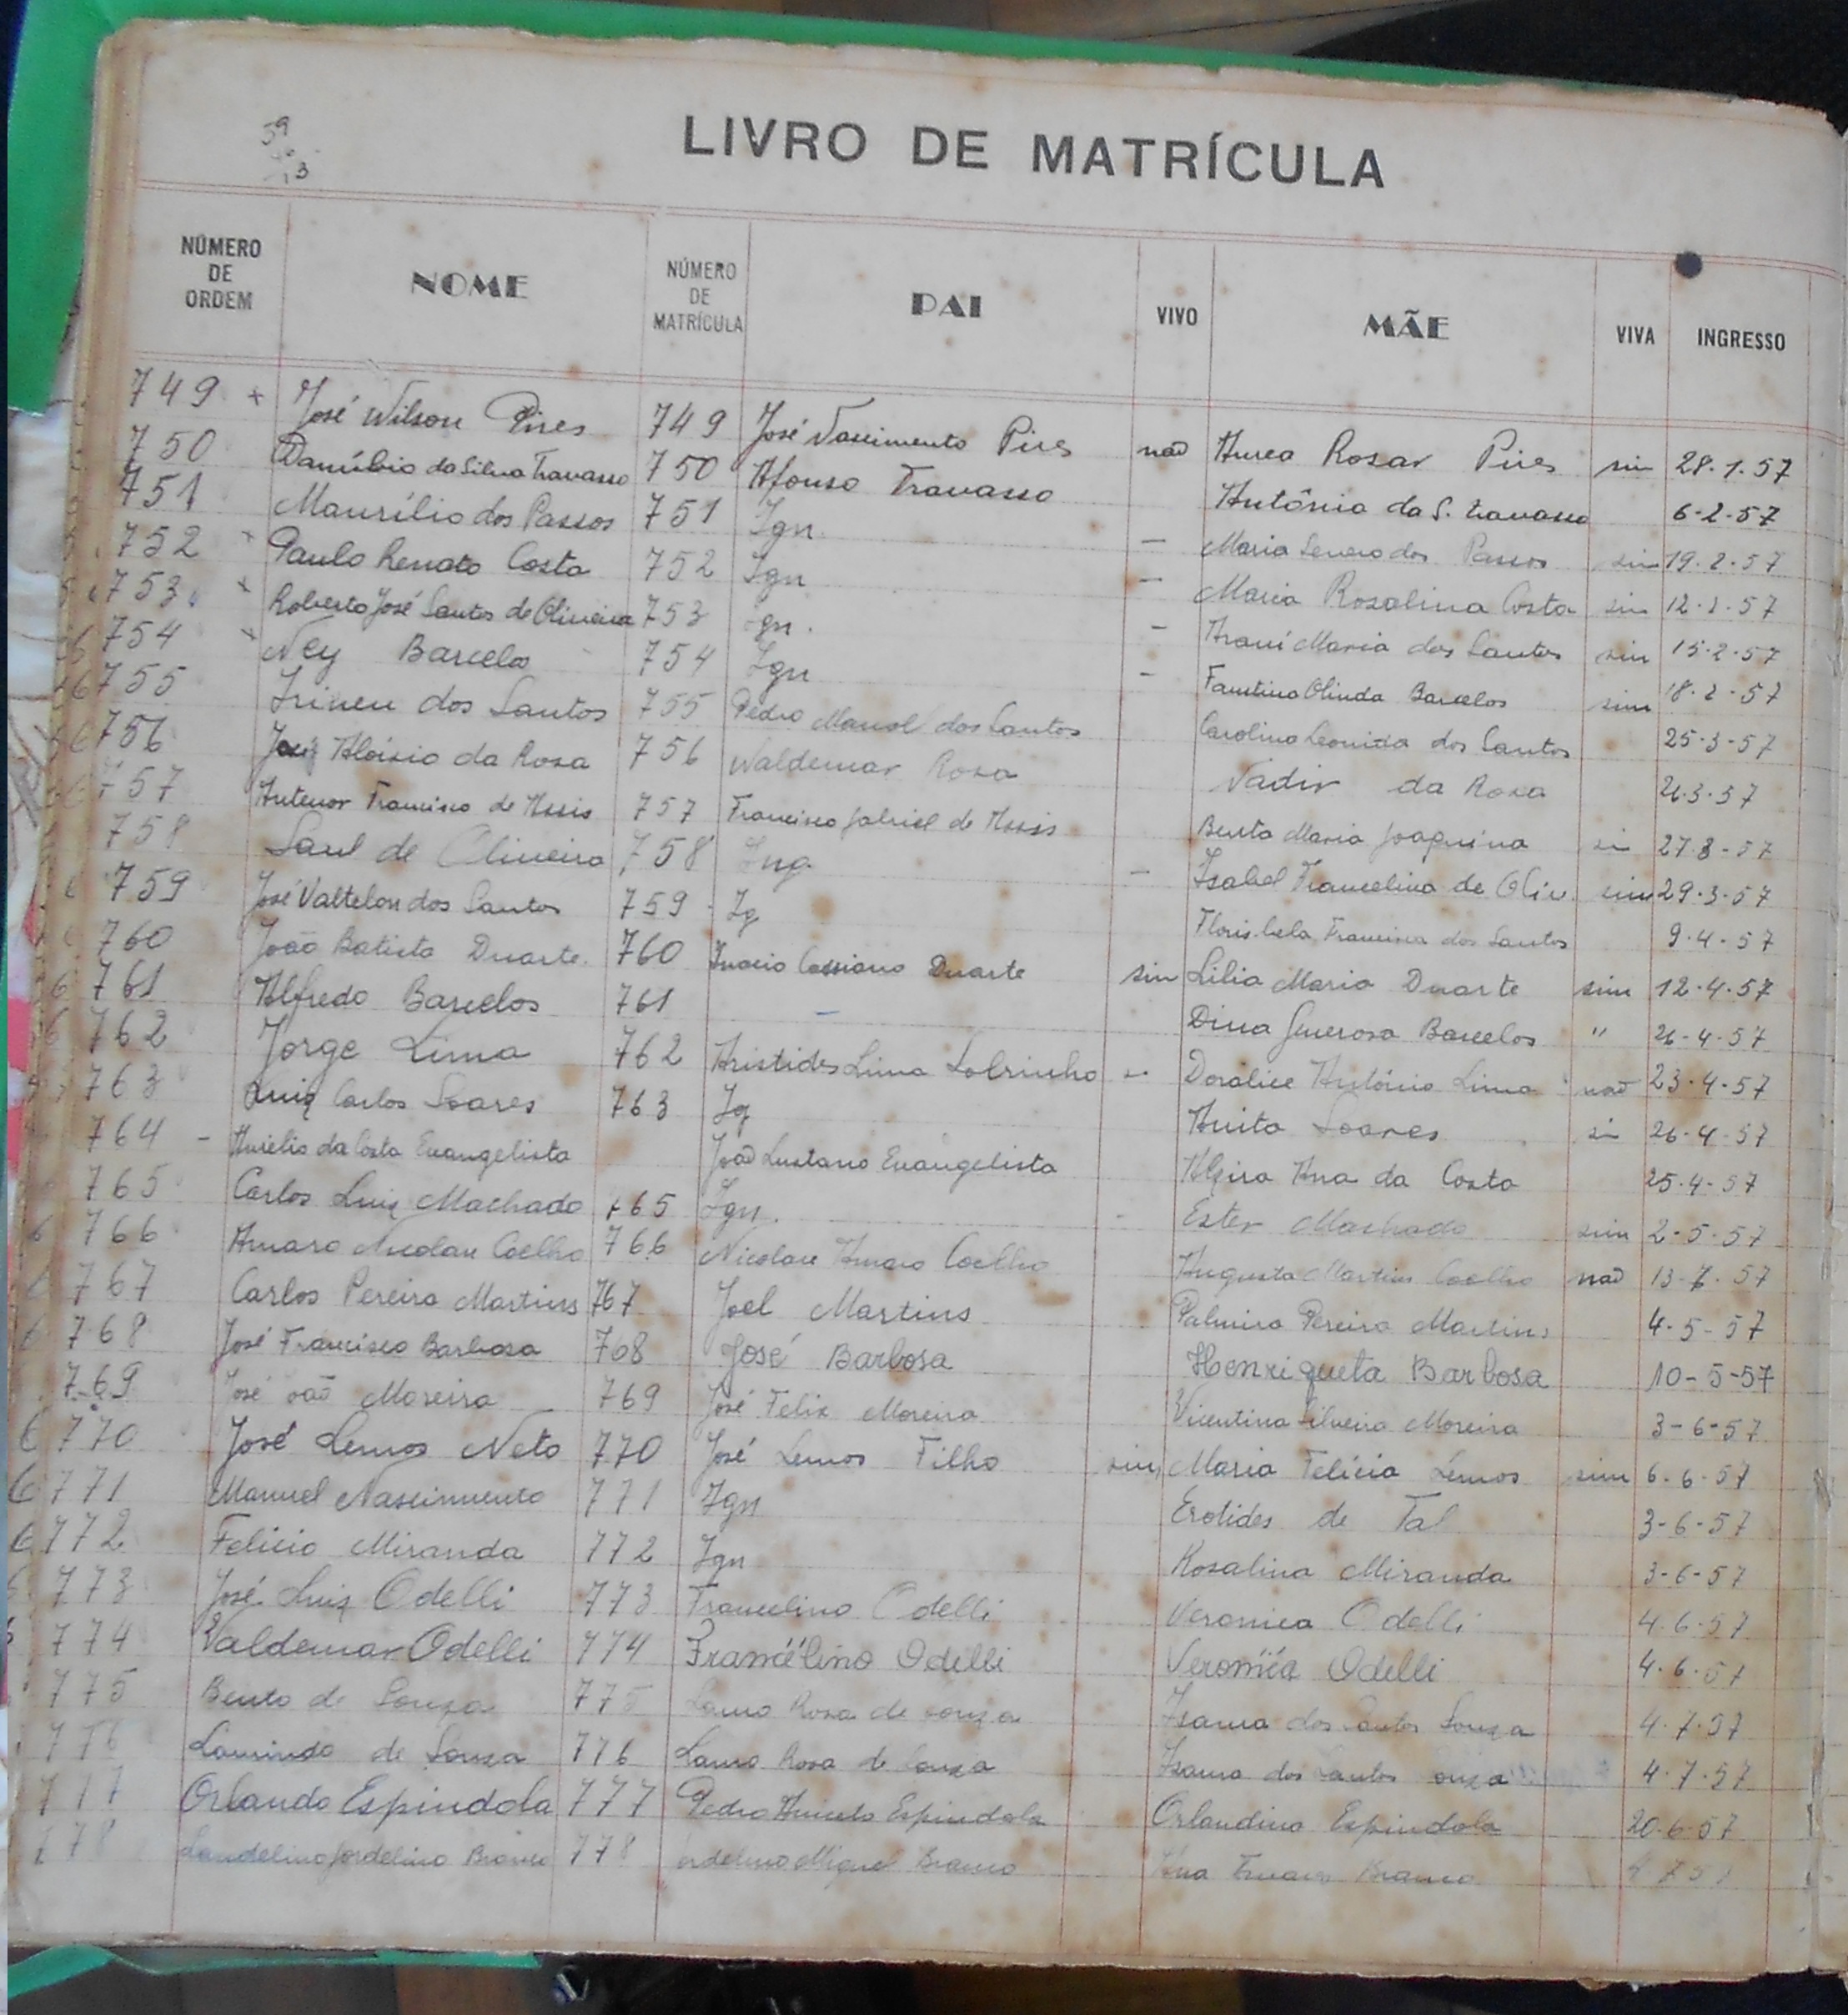 59
3
LIVRO DE MATRÍCULA
NÚMERO DE ORDEM NOME NÚMERO DE MATRÍCULA PAI VIVO MÃE VIVA INGRESSO
749 + José Wilson Pires 749 José Nascimento Pires não Aurea Rosar Pires sim 28.1.57
750 Danúbio da Silva Travasso 750 Afonso Travasso Antônia da S. Travasso 6-2-57
751 Maurílio dos Passos 751 Ign. — Maria Severo dos Passos sim 19.2.57
752 Paulo Renato Costa 752 Ign — Maria Rosalina Costa sim 12.2.57
753 Roberto José Santos de Oliveira 753 Ign. - Maria dos Santos sim 15.2.57
754 Ney Barcelo 754 Ign - Faustina Olinda Barcelos sim 18.2-57
755 Irineu dos Santos 755 Pedro Manoel dos Santos Carolina Leonida dos Santos 25-3-57
756 Aloisio da Rosa 756 Waldemar Rosa Nadir da Rosa 21.3.57
757 Antenor Francisco de Assis 757 Francisco Gabriel de Assis Benta Maria Joaquina sim 27.3-57
758 Saul de Oliveira 758 Ing. — Isabel Francelina de Oliv. sim 29.3-57
759 José Valtelon dos Santos 759 Ig Francisca dos Santos 9.4-57
760 João Batista Duarte. 760 Inacio Cassiano Duarte sim Lilia Maria Duarte sim 12.4.57
761 Alfredo Barcelos 761 — Dina Generosa Barcelos " 26-4-57
762 Jorge Lima 762 Aristides Lima Sobrinho Doralice Antônia Lima não 23.4-57
763 Luiz Carlos Soares 763 Ig Anita Soares sim 26-4-57
764 - Aurelio da Costa Evangelista João Lustano Evangelista Alzira Ana da Costa 25.4-57
765 Carlos Luiz Machado 765 Ign. - Ester Machado sim 2-5-57
766 Amaro Nicolau Coelho 766 Nicolau Amaro Coelho Augusta Martins Coelho não 13-7.57
767 Carlos Pereira Martins 767 Joel Martins Palmira Pereira Martins 4-5-57
768 José Francisco Barbosa 768 José Barbosa Henriqueta Barbosa 10-5-57
769 José João Moreira 769 José Felix Moreira Vicentina Silveira Moreira 3-6-57
770 José Lemos Neto 770 José Lemos Filho sim Maria Felícia Lemos sim 6.6.57
771 Manuel Nascimento 771 Ign Erotides de Tal 3-6-57
772 Felicio Miranda 772 Ign Rosalina Miranda 3-6-57
773 José Luiz Odelli 773 Francelino Odelli Veronica Odelli 4.6.57
774 Valdemar Odelli 774 Francelino Odelli Veronica Odelli 4.6.57
775 Bento de Souza 775 Lauro Rosa de Souza Isaura dos Santos Souza 4.7.57
776 Laurindo de Souza 776 Lauro Rosa de Souza Isaura dos Santos Souza 4.7.57
777 Orlando Espindola 777 Pedro Aniceto Espindola Orlandina Espindola 20.6.57
778 Laudelino Jordelino Branco 778 Jordelino Miguel Branco Ana Branco